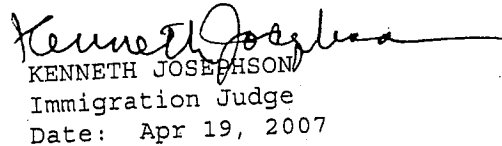 Kenneth Josephson
KENNETH JOSEPHSON
Immigration Judge
Date: Apr 19, 2007